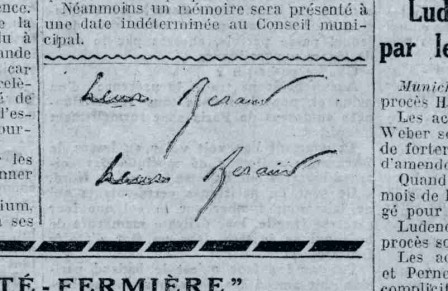 ence.
e la
du à
ande
car
relè-
é de
d'es-
our-
les
onner
ium,
ses
Néanmoins un mémoire sera présenté à
une date indéterminée au Conseil muni-
cipal.
Henri Beraud
Henri Beraud
TÉ-FERMIÈRE"
Lude
par le
Munich
procès H
Les ac
Weber se
de forter
d'amende
Quand
mois de l
gé pour
Luden
procès so
Les ac
et Perne
complicit